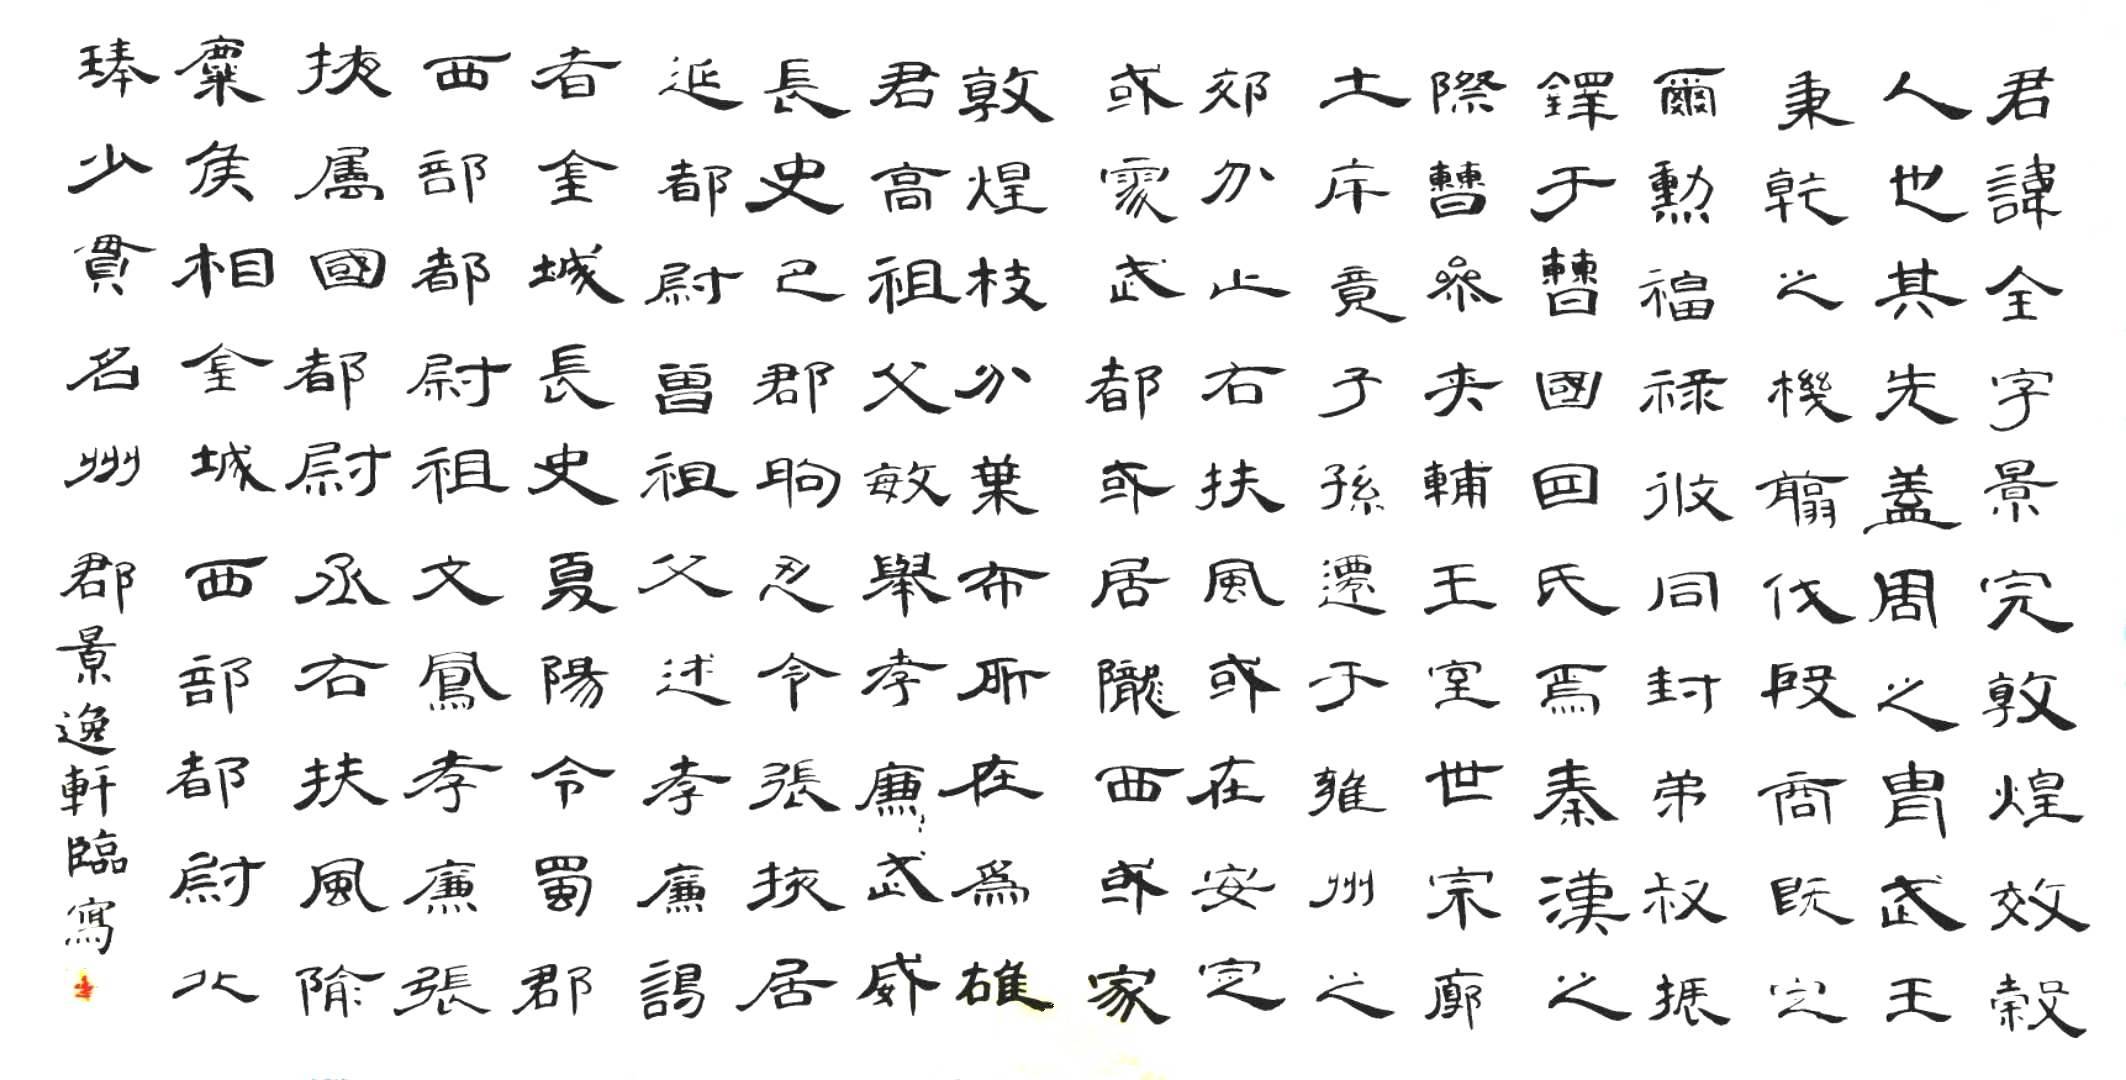 君諱全字景完敦煌效穀
人也其先蓋周之冑武王
秉乾之機翦伐殷商既定
爾勳福祿攸同封弟叔振
鐸于曹國因氏焉秦漢之
際曹參夾輔王室世宗廓
土斥竟子孫遷于雍州之
郊分止右扶風或在安定
或處武都或居隴西或家
敦煌枝分葉布所在為雄
君高祖父敏舉孝廉武威
長史巴郡朐忍令張掖居
延都尉曾祖父述孝廉謁
者金城長史夏陽令蜀郡
西部都尉祖父鳳孝廉張
掖屬國都尉丞右扶風隃
麋侯相金城西部都尉北
琫少貫名州郡景逸軒臨寫